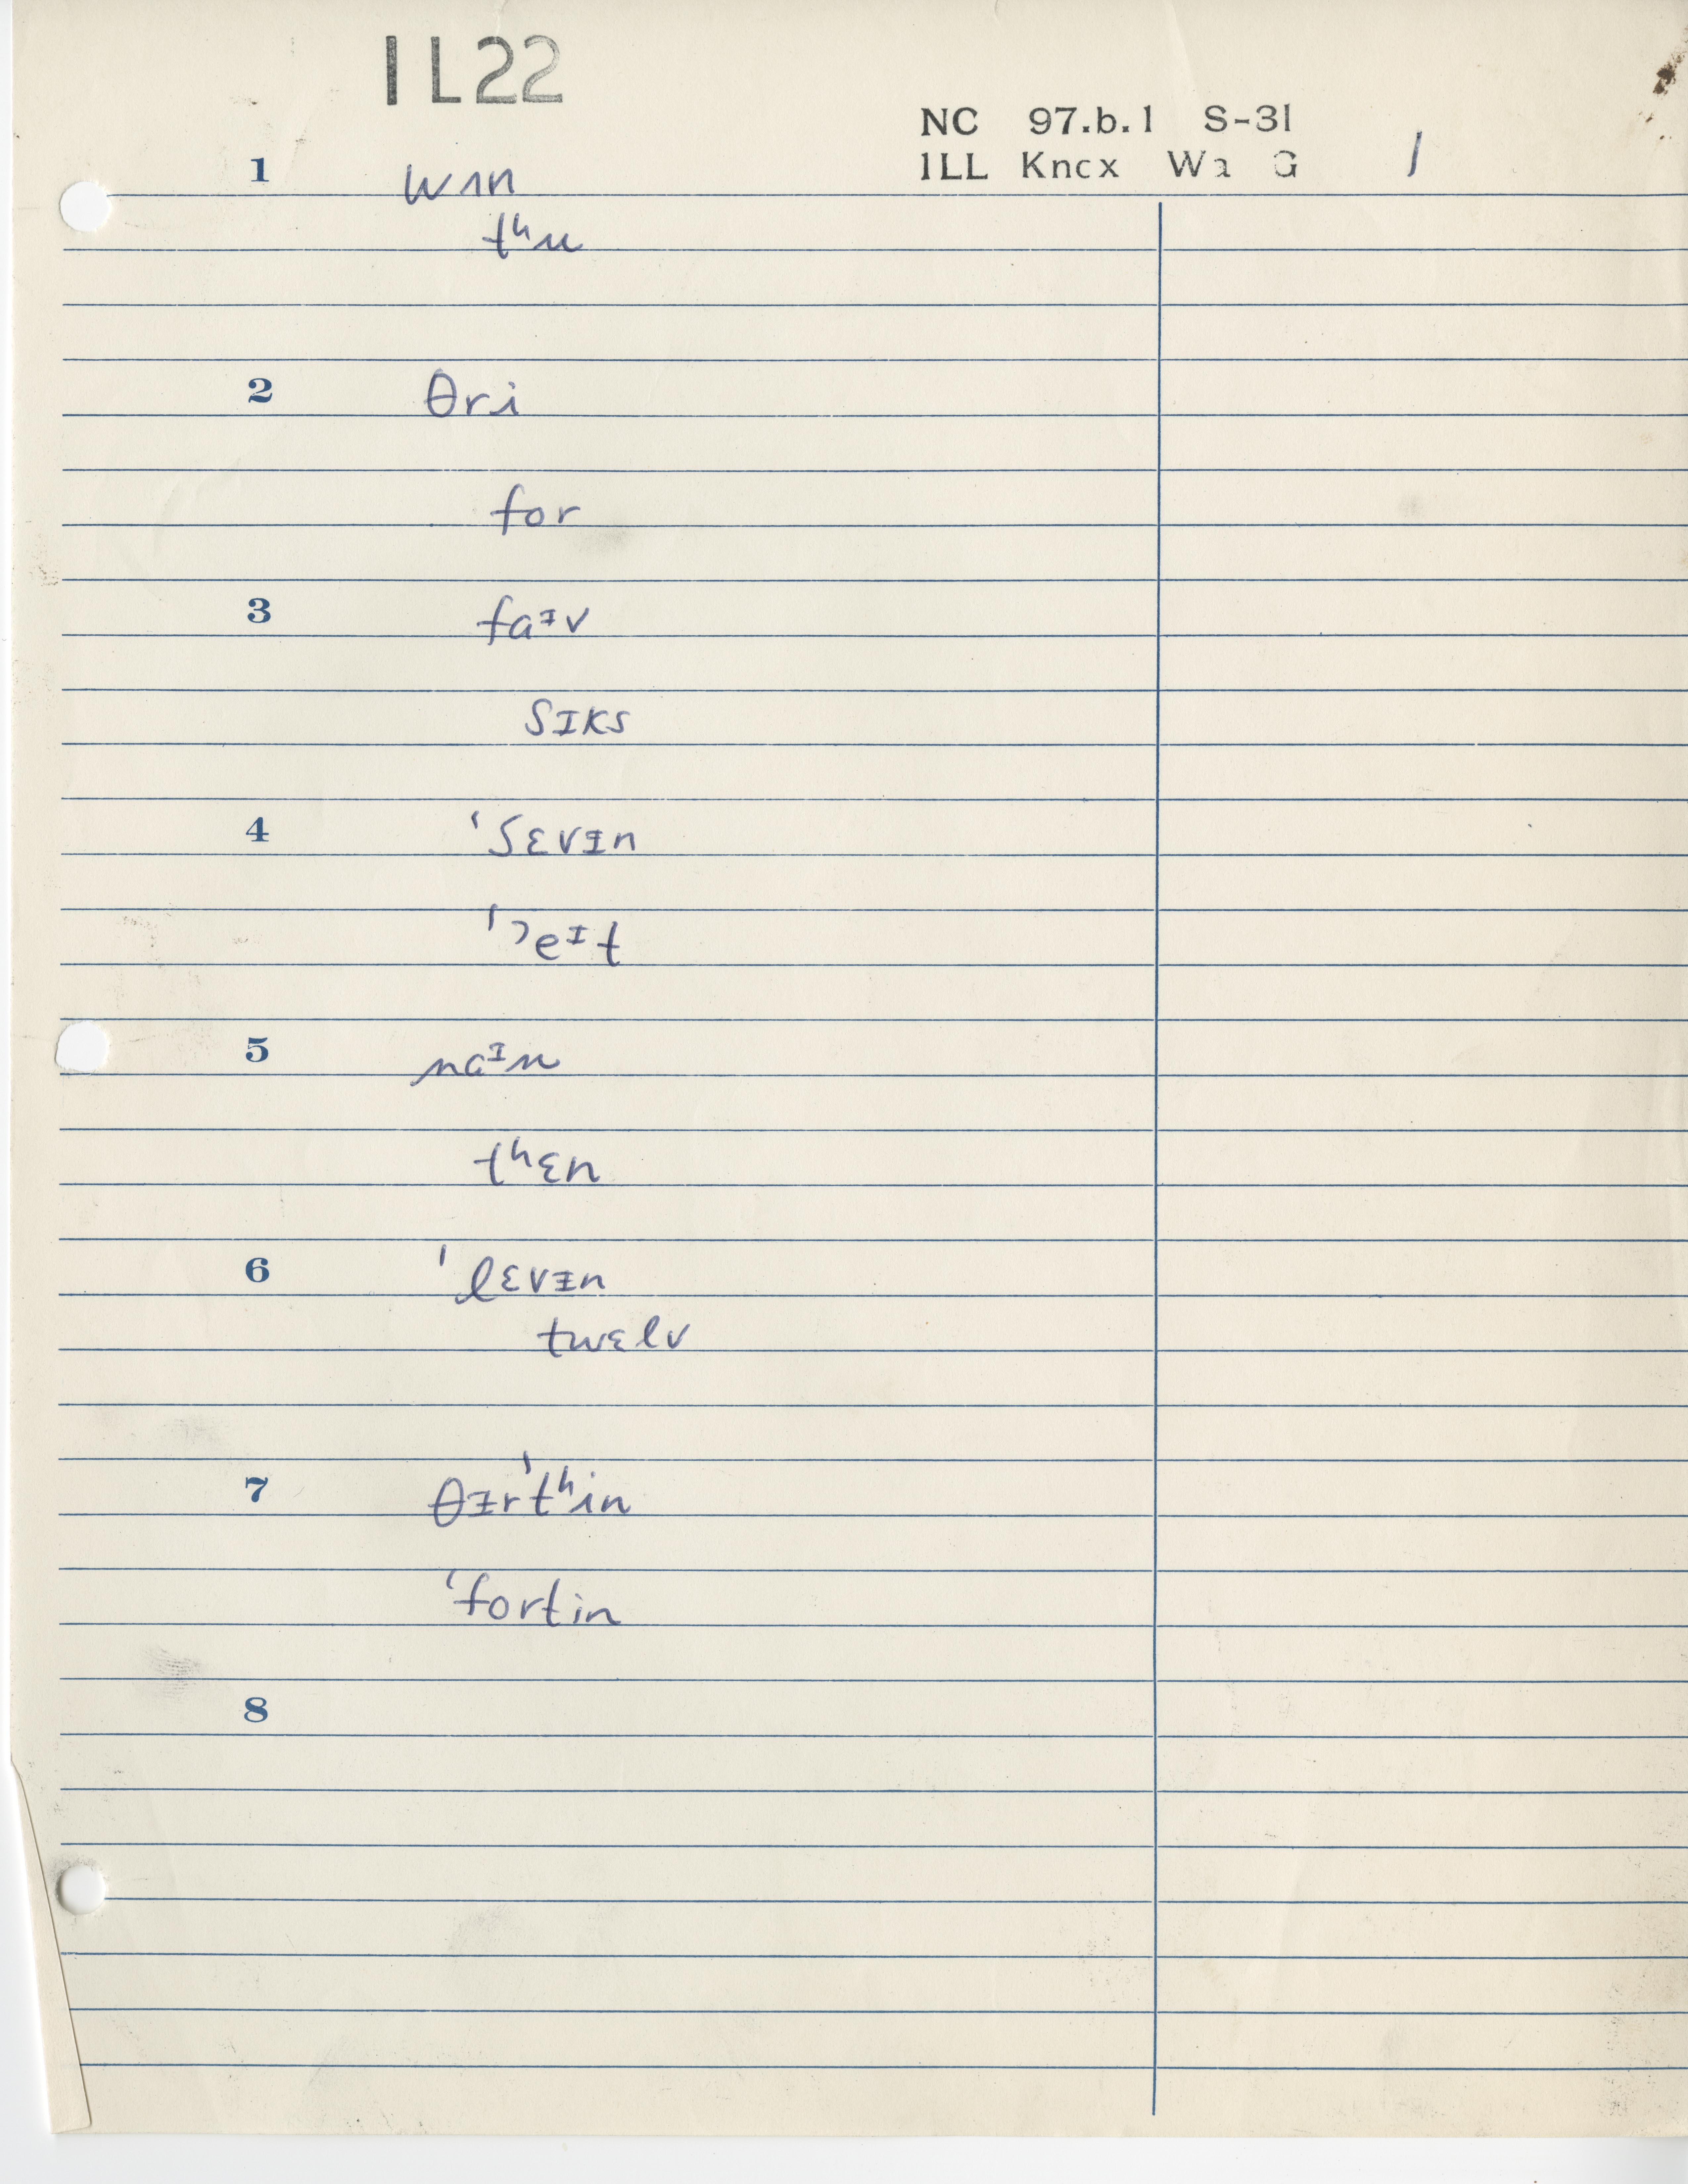 IL22
NC 97.b.1 S-31
ILL Knox Wa G 1
1 wʌn
tʰu
2 θri
for
3 faᵻv
sɪks
4 ˈsɛvᵻn
ˈʔeɪt
5 naɪn
tʰɛn
6 ˈlɛvᵻn
twɛlv
7 θᵻrˈtʰin
ˈfortin
8